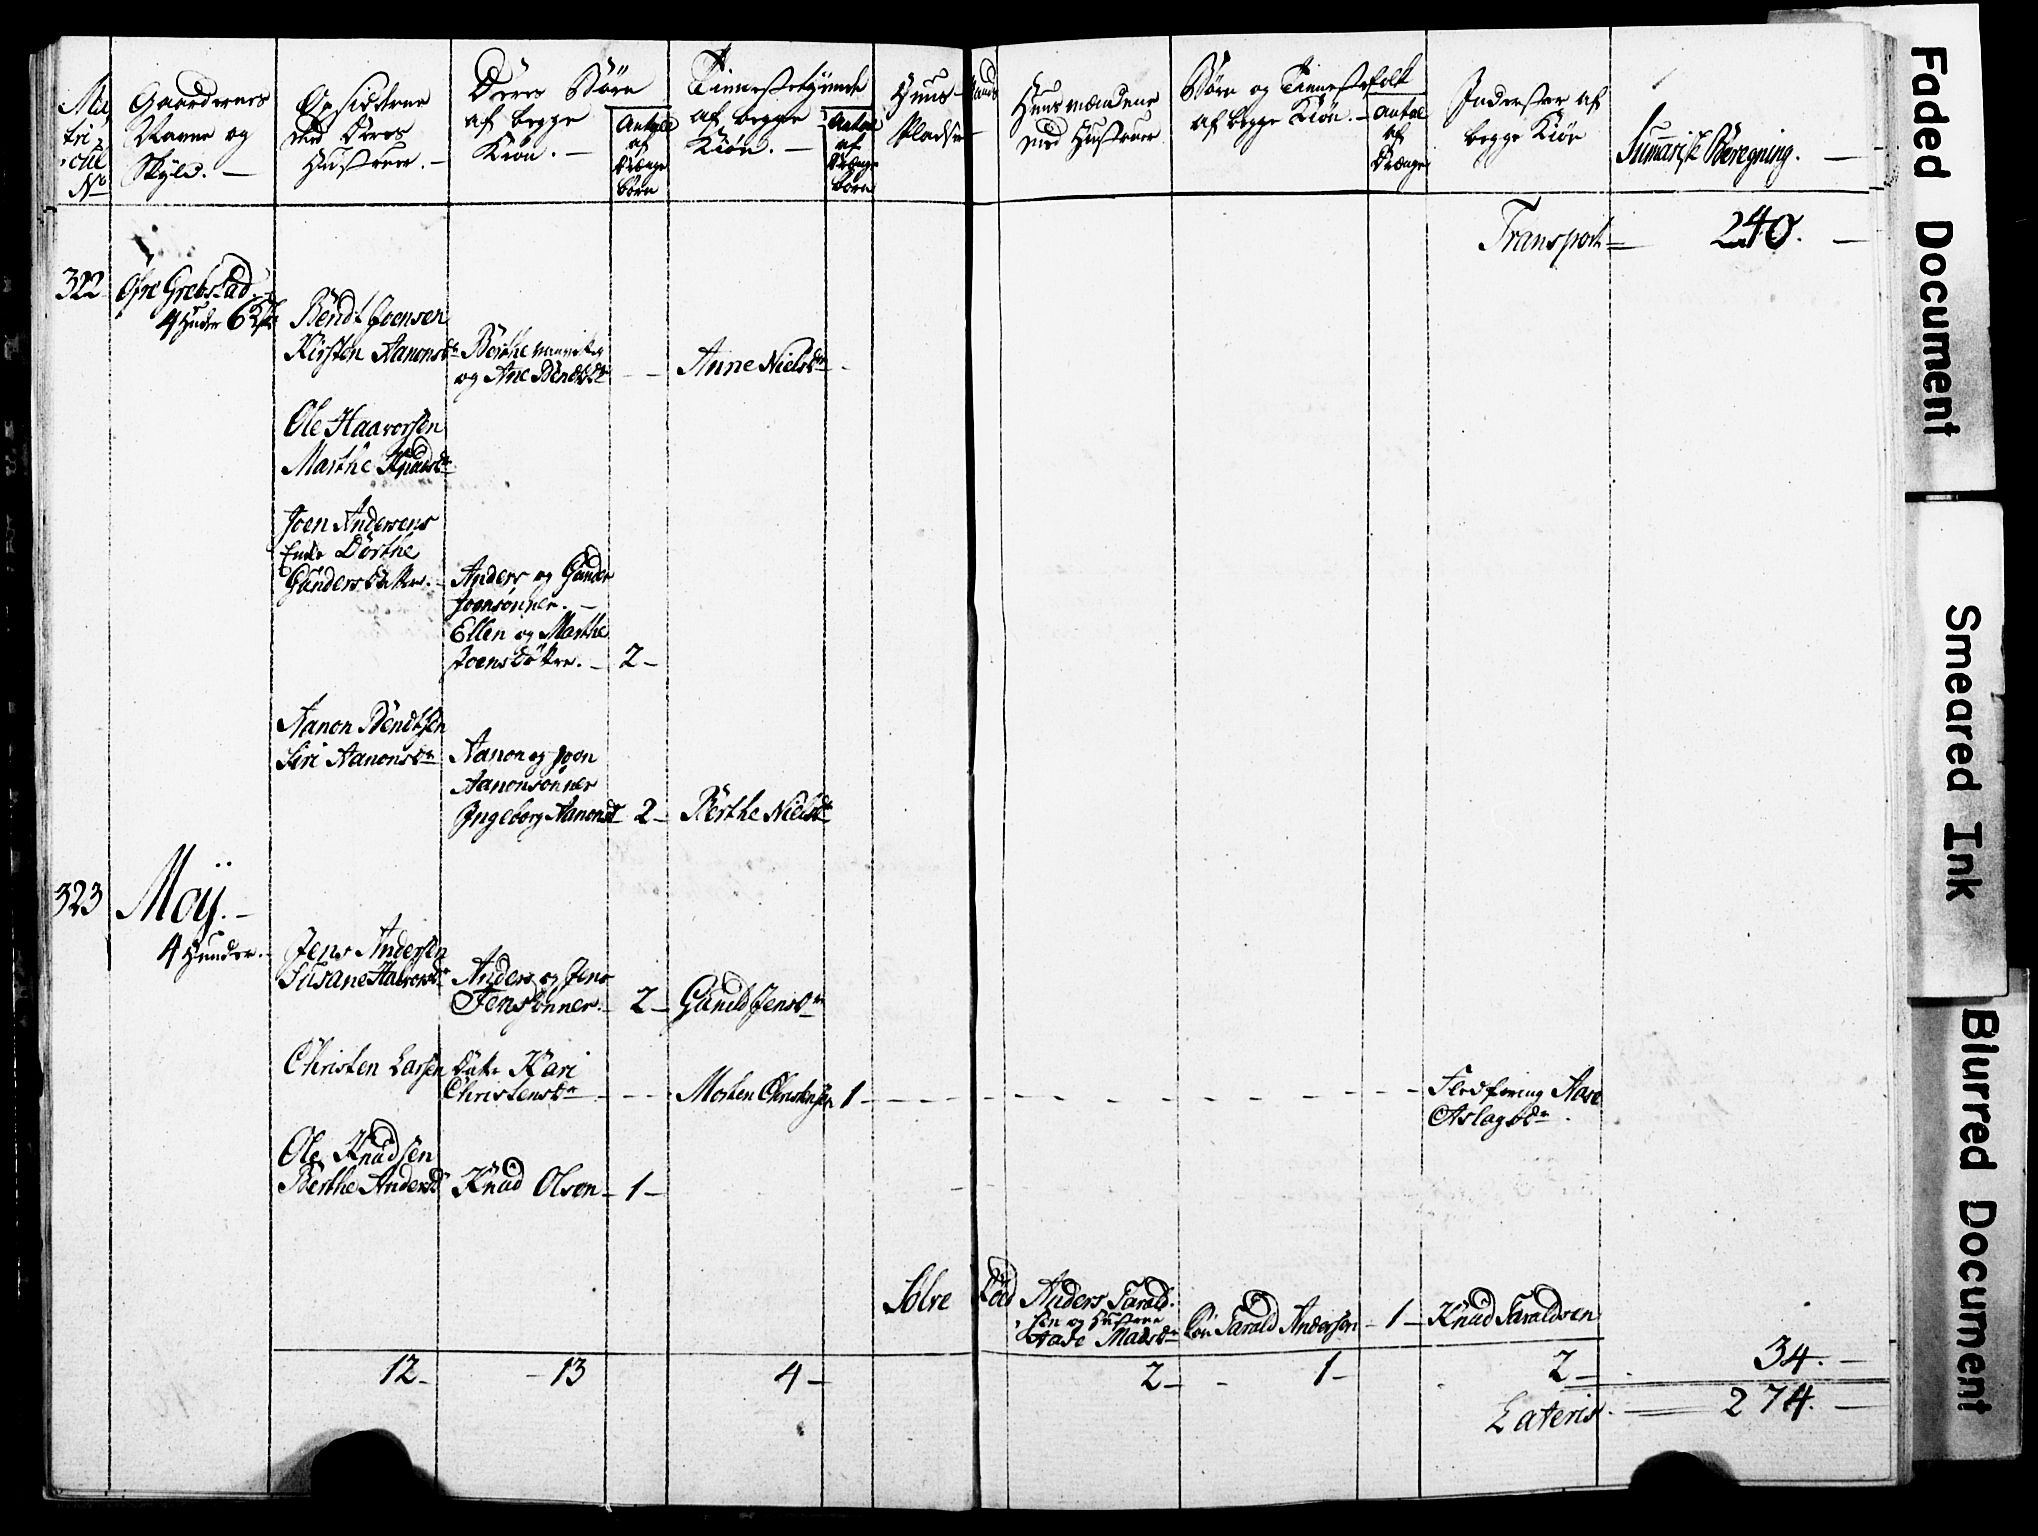 Ma
tri
cul
No
Gaardernes
Navne og
Skyld. —
Opsidderne
med Deres
Hustruer. —
Deres Börn
af begge
Kiön. —
Antall
af
Drænge
börn
Tienestetÿende
af begge
Kiön. —
Antal
af
Drænge
börn
Huus-
Pladser
Huusmændene
med Hustruer
Börn og Tienestefolk
af begge Kiön. —
Antal
af
Drænge
Inderster af
begge Kiön
Sumarisk Beregning. —
Transport — 240. —
322 Öfre Grebstad. —
4 Huder 6
Bendt Joensen
Kirsten Aanonsdr Berthe
og Ane Bendtsdr — — Anne Nielsdr —
Ole Haavorsen
Marthe Knudsdr
Joen Andersens
Enke Dorthe
Gundersdatter. — Anders og Gunder
Joensönner. —
Ellen og Marthe
Joensdöttre. — 2 —
Aanon Bendtsen
Siri Aanonsdr Aanon og Joen
Aanonsönner
Ingeborg Aanonsd 2 — Berthe Nielsdr
323 Moÿ. —
4 Huuder. — Jens Andersen
Susane Halvorsdr Anders og Jens
Jensönner. — 2 — Gunild Jensdr
Christen Larsen Datr Kari
Christensdr — — — Morten Christensen 1 — — — — — — — — — — — Fledföring Aase
Aslagsdr.
Ole Knudsen
Berthe Andersd Knud Olsen — 1 —
Solve Röed Anders Tarald-
sen og Hustrue
Aase Madsdr Sön Tarald Andersen — 1 — Knud Taraldsen
12 — — 13 4 — 2 — — 1 — 2 — 34. —
Lateris. — 274. —
Faded Document
Smeared Ink
Blurred Document